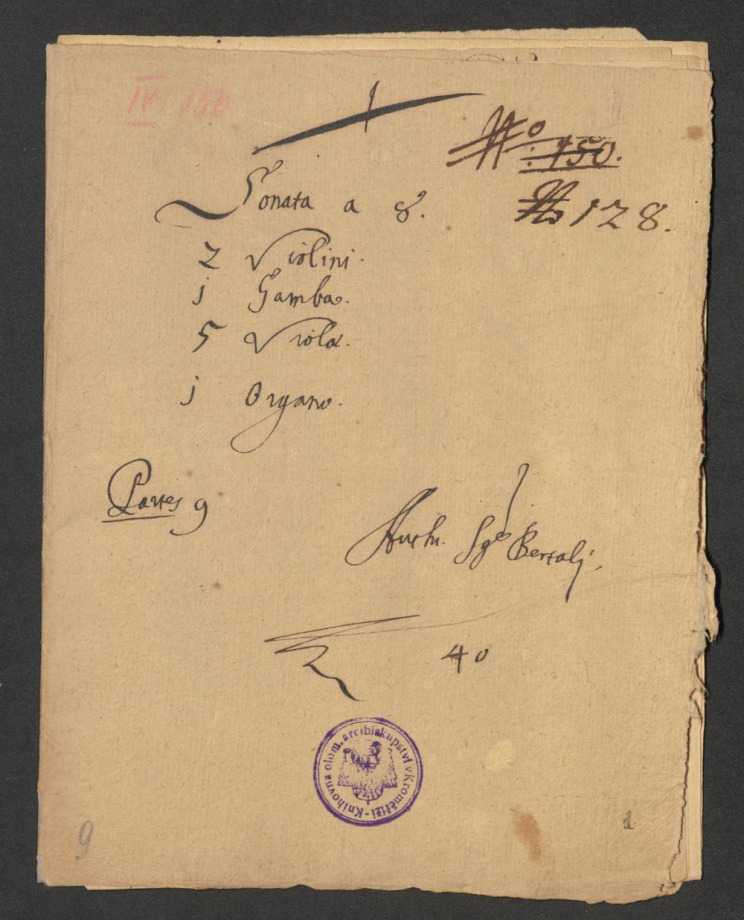 IV 150
No: 150.
No 128.
Sonata a 8.
2 Violini.
j Gamba.
5 Viola.
j Organo.
Partes 9
Auth. Sgre Bertalj.
40
Knihovna olom. arcibiskupství v Kroměříži
9
1